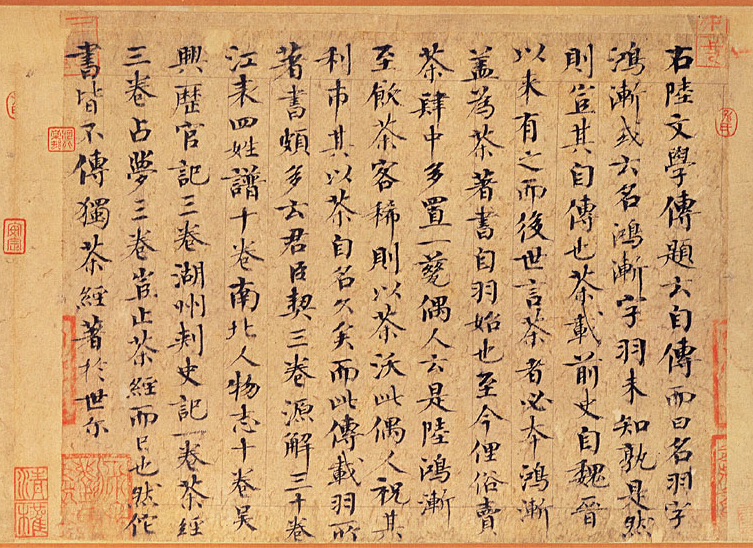 右陸文學傳題云自傳而曰名羽字
鴻漸或云名鴻漸字羽未知孰是然
則豈其自傳也茶載前史自魏晉
以來有之而後世言茶者必本鴻漸
盖為茶著書自羽始也至今俚俗賣
茶肆中多置一甆偶人云是陸鴻漸
至飲茶客稀則以茶沃此偶人祝其
利市其以茶自名久矣而此傳載羽所
著書頗多云君臣契三卷源解三十卷
江表四姓譜十卷南北人物志十卷吳
興歷官記三卷湖州刺史記一卷茶經
三卷占夢三卷豈止茶經而已也然佗
書皆不傳獨茶經著於世尔